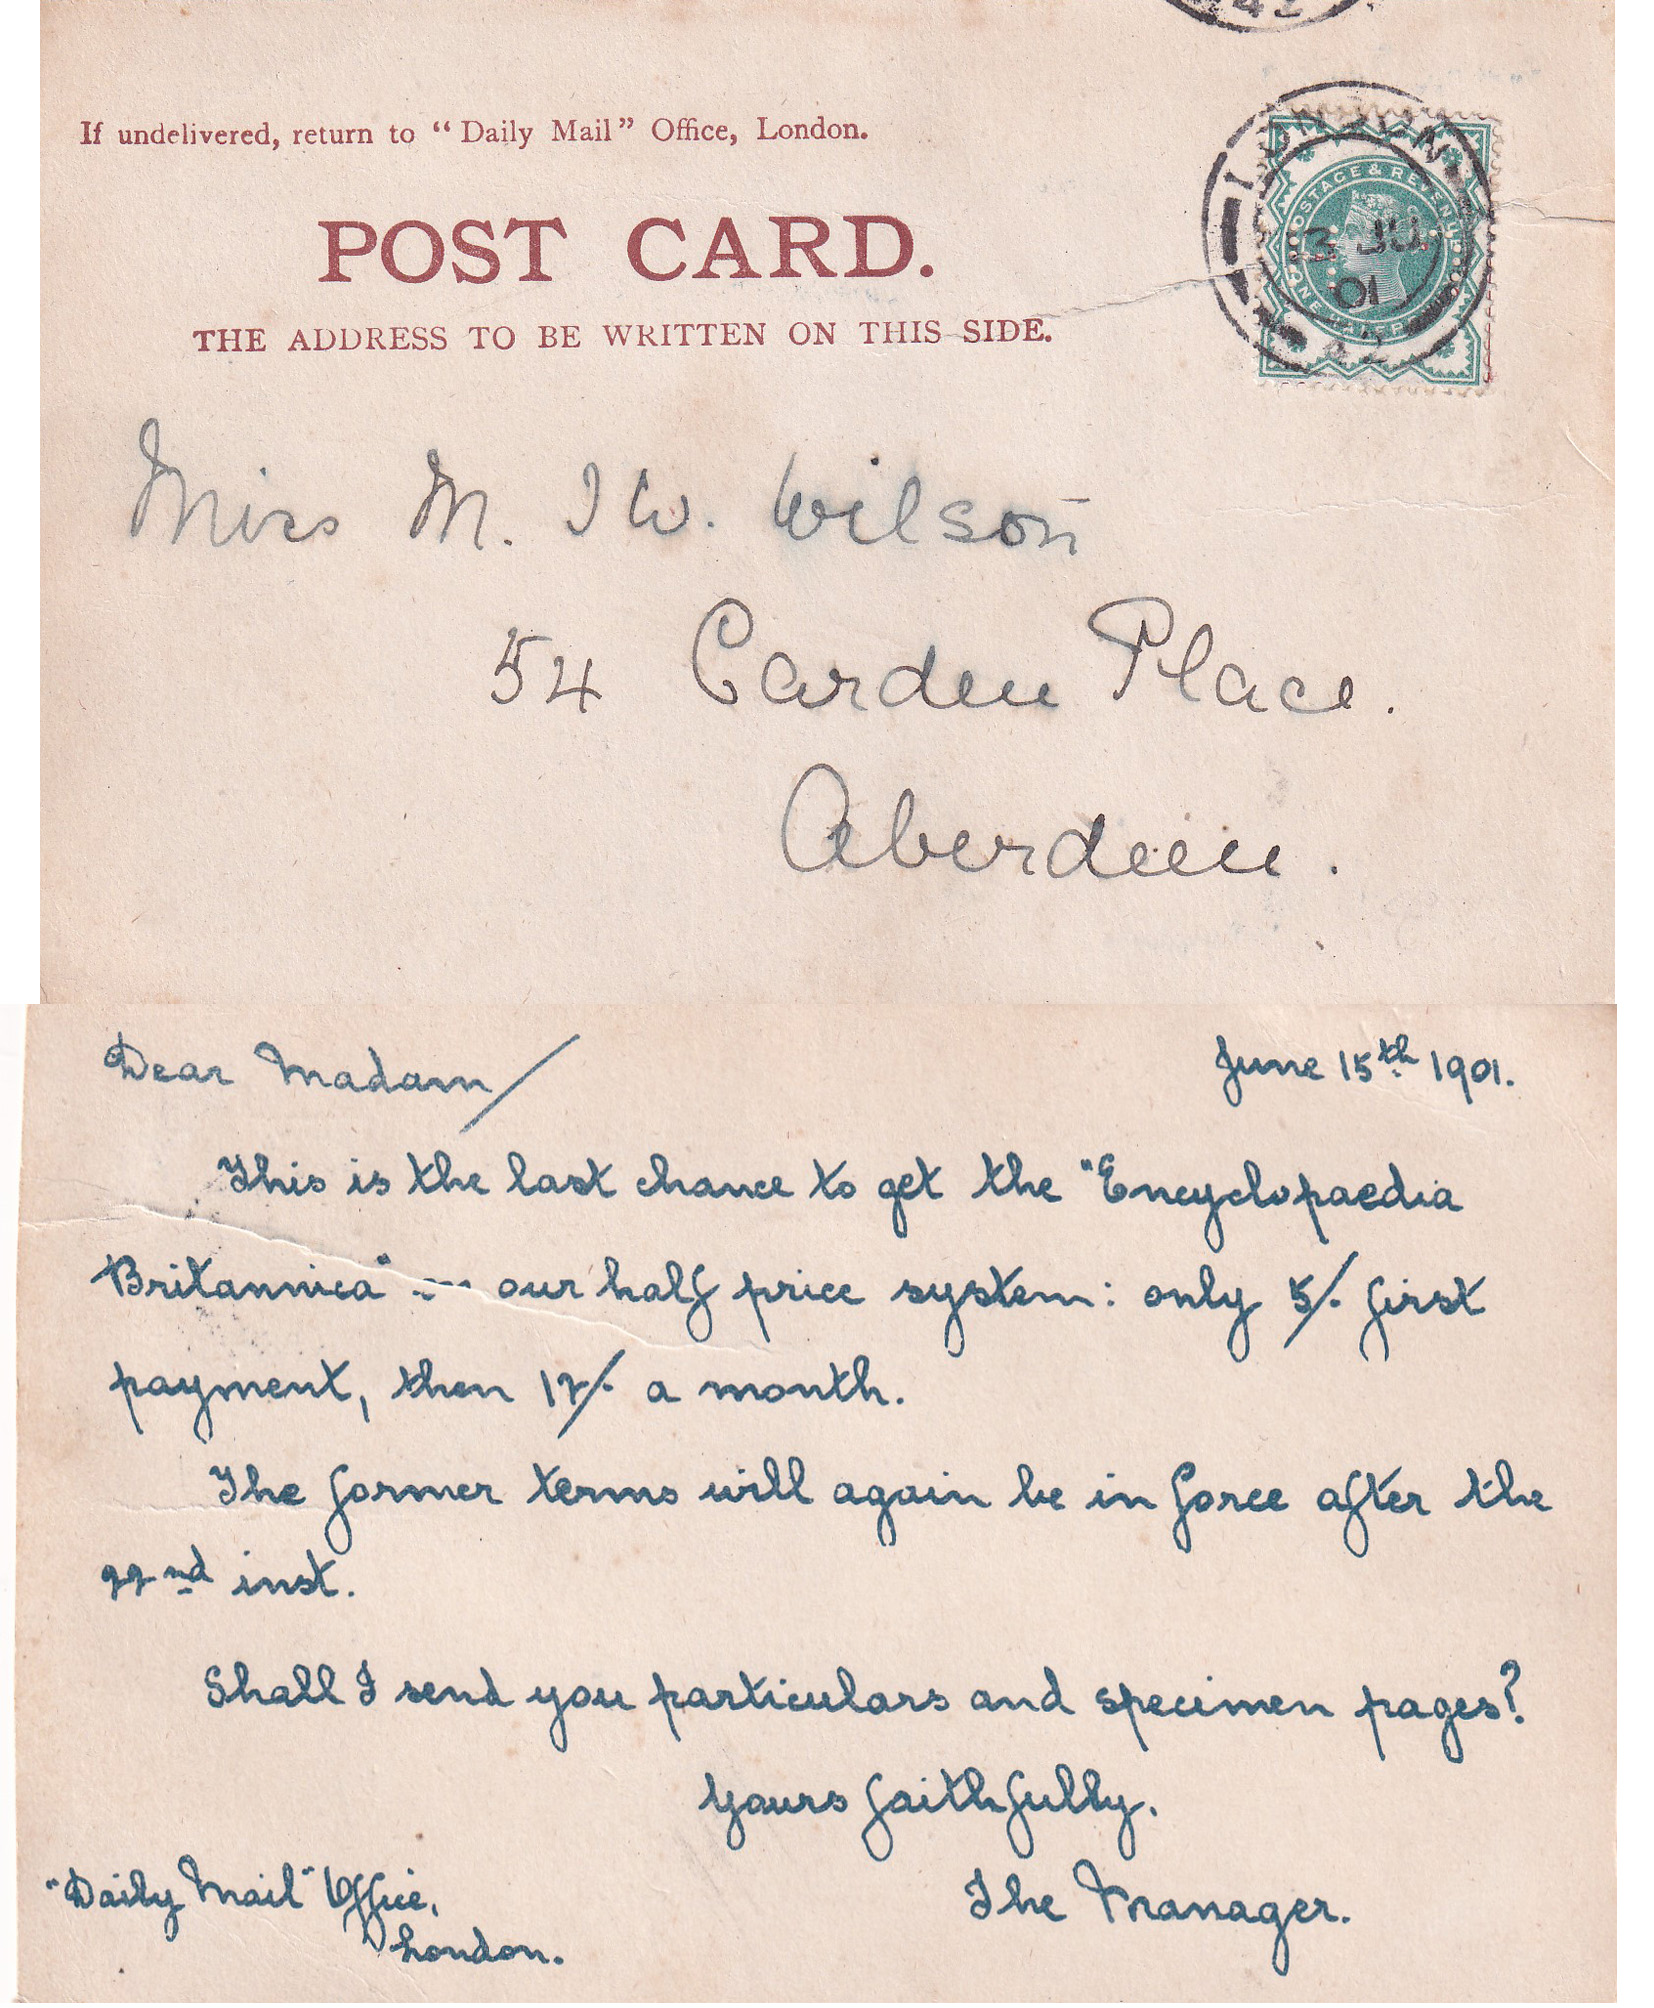 If undelivered, return to “Daily Mail” Office, London.
POST CARD.
THE ADDRESS TO BE WRITTEN ON THIS SIDE.
LONDON
POSTAGE & REVENUE
13 JU
01
42
Miss M. I W. Wilson
54 Carden Place.
Aberdeen.
Dear Madam/
June 15th 1901.
This is the last chance to get the "Encyclopaedia
Britannica" on our half price system: only 5/- first
payment, then 12/- a month.
The former terms will again be in force after the
22nd inst.
Shall I send you particulars and specimen pages?
Yours faithfully.
The Manager.
"Daily Mail" Office,
London.